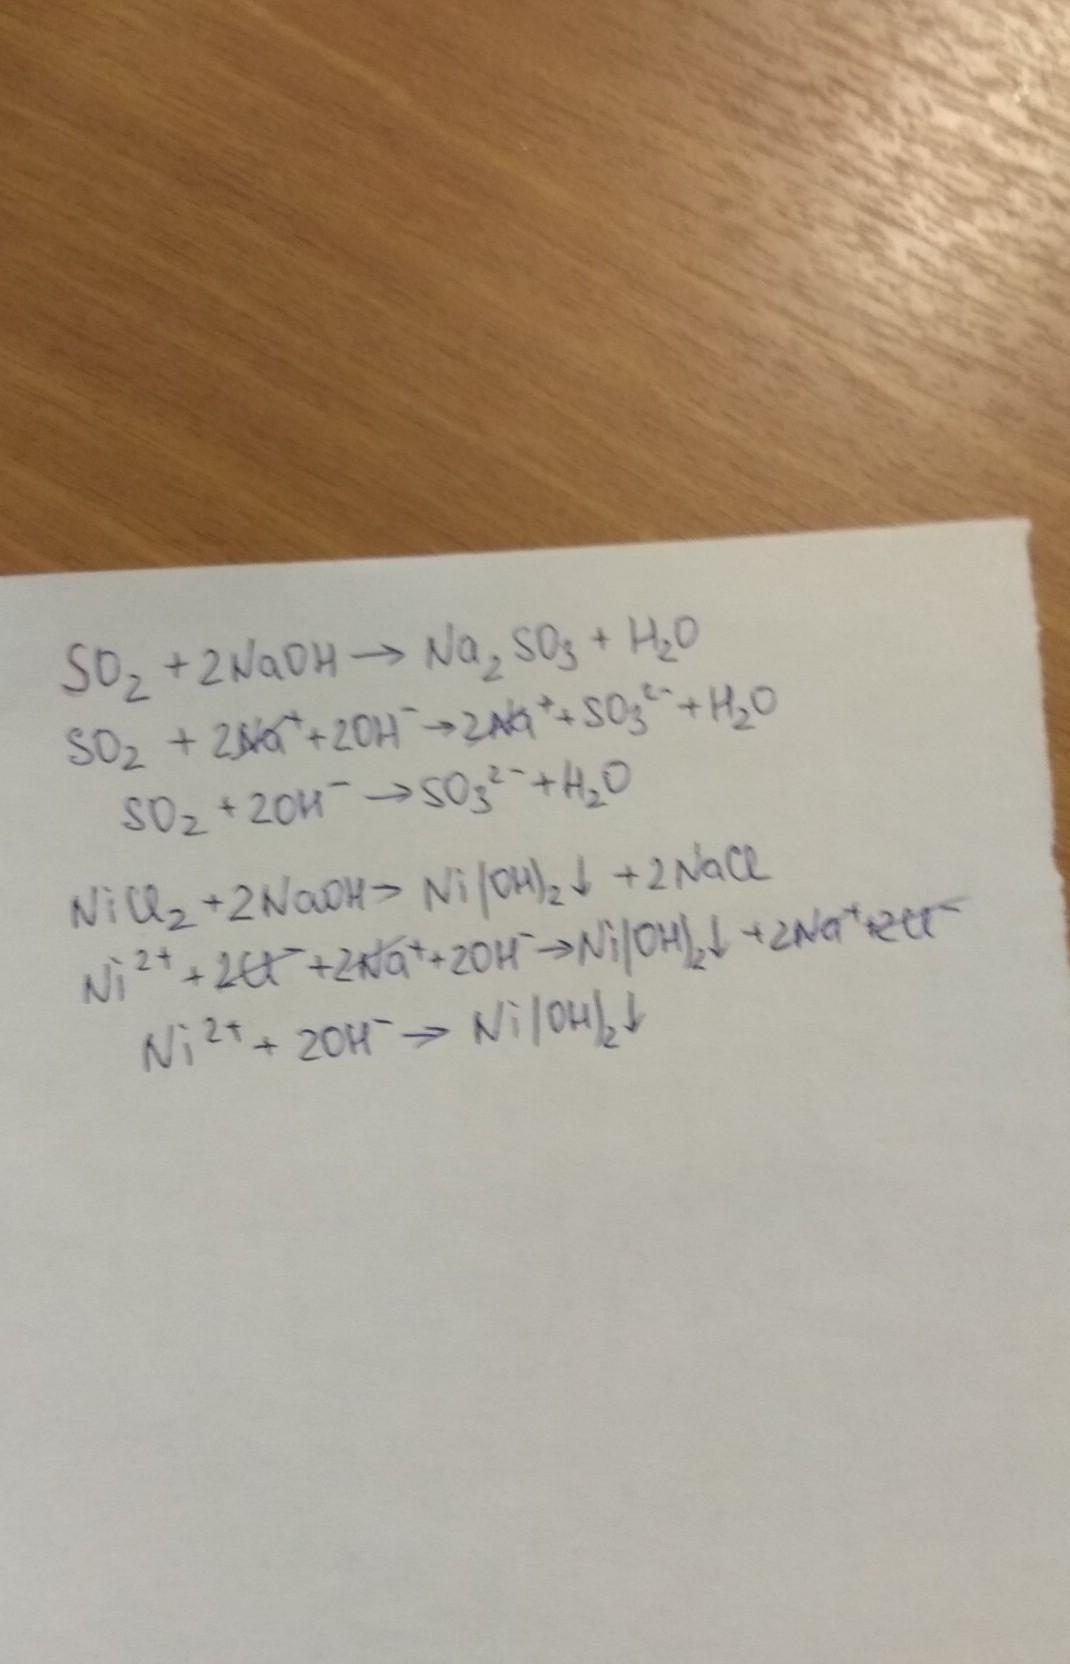 SO₂ + 2NaOH → Na₂SO₃ + H₂O
SO₂ + 2Na⁺ + 2OH⁻ → 2Na⁺ + SO₃²⁻ + H₂O
SO₂ + 2OH⁻ → SO₃²⁻ + H₂O
NiCl₂ + 2NaOH → Ni(OH)₂↓ + 2NaCl
Ni²⁺ + 2Cl⁻ + 2Na⁺ + 2OH⁻ → Ni(OH)₂↓ + 2Na⁺ + 2Cl⁻
Ni²⁺ + 2OH⁻ → Ni(OH)₂↓